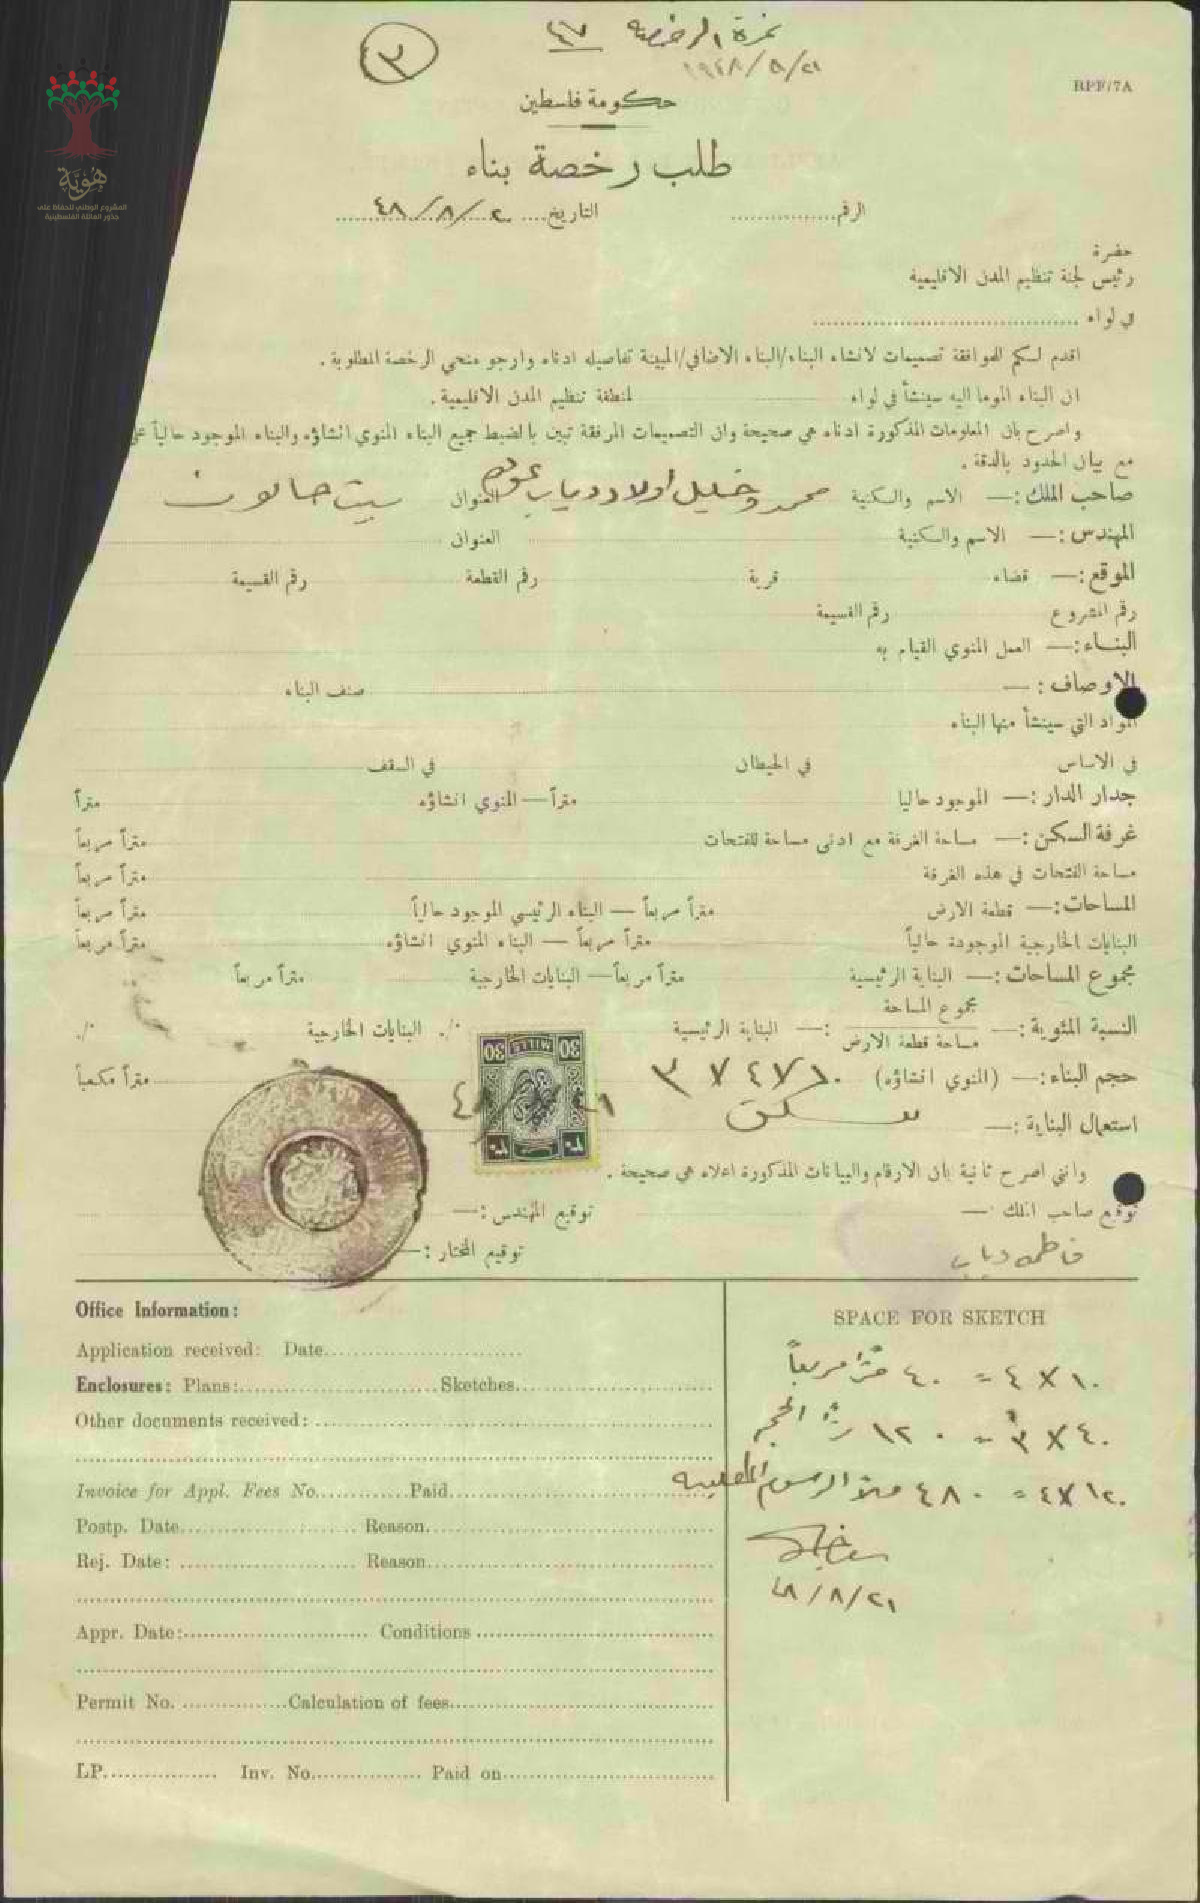 نمرة الرخصه ٤٧
٣
١٩٤٨/٨/٢١
RPF/7A
حكومة فلسطين
طلب رخصة بناء
الرقم ............... التاريخ .... ٤٨/٨/٢٠
هُوِيَّة
المشروع الوطني للحفاظ على
جذور العائلة الفلسطينية
حضرة
رئيس لجنة تنظيم المدن الاقليمية
في لواء
اقدم لكم للموافقة تصميمات لانشاء البناء/البناء الاضافي/المبينة تفاصيله ادناه وارجو منحي الرخصة المطلوبة .
ان البناء الموما اليه سينشأ في لواء لمنطقة تنظيم المدن الاقليمية .
واصرح بان المعلومات المذكورة ادناه هي صحيحة وان التصميمات المرفقة تبين بالضبط جميع البناء المنوي انشاؤه والبناء الموجود حالياً
مع بيان الحدود بالدقة .
صاحب الملك :— الاسم والكنية محمد وخليل اولاد دياب العنوان بيت حانون
المهندس :— الاسم والكنية العنوان
الموقع :— قضاء قرية رقم القطعة رقم القسيمة
رقم المشروع رقم القسيمة
البناء :— العمل المنوي القيام به
الاوصاف :— صنف البناء
المواد التي سينشأ منها البناء
في الاساس في الحيطان في السقف
جدار الدار :— الموجود حاليا متراً — المنوي انشاؤه متراً
غرفة السكن :— مساحة الغرفة مع ادنى مساحة للفتحات متراً مربعاً
مساحة الفتحات في هذه الغرفة متراً مربعاً
المساحات :— قطعة الارض متراً مربعاً — البناء الرئيسي الموجود حالياً متراً مربعاً
البنايات الخارجية الموجودة حالياً متراً مربعاً — البناء المنوي انشاؤه متراً مربعاً
مجموع المساحات :— البناية الرئيسية متراً مربعاً — البنايات الخارجية متراً مربعاً
النسبة المئوية :— مجموع المساحة
مساحة قطعة الارض :— البناية الرئيسية ٠/. البنايات الخارجية ٠/.
حجم البناء :— (المنوي انشاؤه) ١٠ X ٤ X ٣ متراً مكعباً
30 MILLS 30
استعمال البناية :— سكن
وانني اصرح ثانية بان الارقام والبيانات المذكورة اعلاه هي صحيحة .
توقيع صاحب الملك — توقيع المهندس :—
فاطمه دياب
توقيع المختار :—
Office Information:
Application received: Date..........................
Enclosures: Plans:.............................Sketches.............................
Other documents received: ..........................................................
Invoice for Appl. Fees No.............Paid......................................
Postp. Date......................... Reason..........................................
Rej. Date: ......................... Reason..........................................
Appr. Date:........................... Conditions ...................................
Permit No. ................Calculation of fees......................................
LP................. Inv. No................. Paid on...............................
SPACE FOR SKETCH
١٠ X ٤ = ٤٠ متراً مربعاً
٤٠ X ٣ = ١٢٠ الحجم
١٢٠ X ٤ = ٤٨٠ ملاً الرسوم
٤٨/٨/٢١